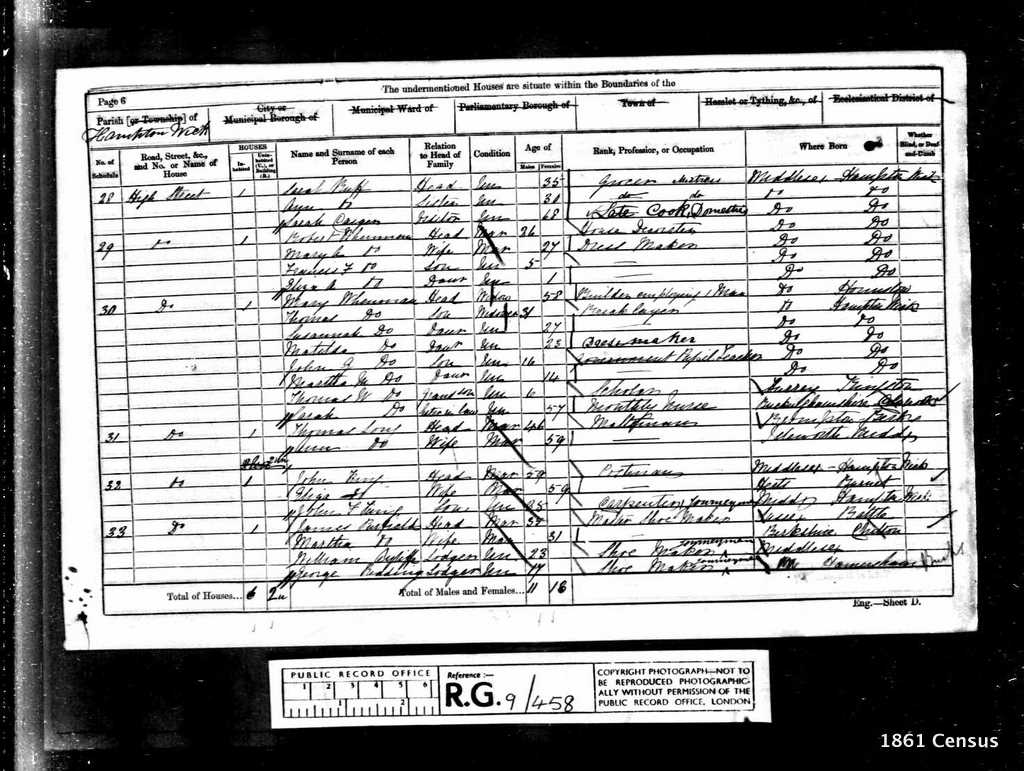 The undermentioned Houses are situate within the Boundaries of the
Page 6
Parish [or Township] of
Hampton Wick
City or Municipal Borough of
Municipal Ward of
Parliamentary Borough of
Town of
Hamlet or Tything, &c., of
Ecclesiastical District of
No. of Schedule
Road, Street, &c., and No. or Name of House
HOUSES
Inhabited
Uninhabited (U.), or Building (B.)
Name and Surname of each Person
Relation to Head of Family
Condition
Age of
Males
Females
Rank, Profession, or Occupation
Where Born
Whether Blind, or Deaf-and-Dumb
28 High Street 1 Sarah Head Un 35 Grocer Middlesex Hampton Wick
Ann Do Sister Un 30 do do Do Do
Sarah Visitor Un 68 Late Cook Domestic Do Do
29 Do 1 Robert Whenman Head Mar 26 House Do Do
Mary Do Wife Mar 27 Dress Maker Do Do
Frances F Do Son Un 5 Do Do
Eliza A Do Daur Un 1 Do Do
30 Do 1 Mary Whenman Head Widow 58 Builder employing 1 Man Do Hounslow
Thomas Do Son Widower 31 Bricklayer Do Hampton Wick
Susannah Do Daur Un 27 Do Do
Matilda Do Daur Un 23 Dressmaker Do Do
John G Do Son Un 16 Government Pupil Teacher Do Do
Martha M Do Daur Un 14 Do Do
Thomas W Do Grandson Un 6 Scholar Surrey Kingston
Sarah Do Sister in law Un 57 Monthly Nurse Buckinghamshire
31 Do 1 Thomas Long Head Mar 46 Maltman
Ann Do Wife Mar 59 Isleworth Middx
32 Do 1 John King Head Mar 59 Postman Middlesex Hampton Wick
Eliza Do Wife Mar 59 Herts Barnet
John F King Son Un 25 Carpenter Journeyman Middx Hampton Wick
33 Do 1 James Head Mar 35 Master Shoe Maker Sussex Battle
Martha Do Wife Mar 31 Berkshire
William Lodger Un 23 Shoe Maker Journeyman Middlesex
George Pidding Lodger Un 17 Shoe Maker Journeyman Bucks
Total of Houses... 6 2u
Total of Males and Females... 11 16
Eng.—Sheet D.
PUBLIC RECORD OFFICE
1 2 3 4 5 6
1 2
Reference :—
R.G. 9/458
COPYRIGHT PHOTOGRAPH—NOT TO
BE REPRODUCED PHOTOGRAPHIC-
ALLY WITHOUT PERMISSION OF THE
PUBLIC RECORD OFFICE, LONDON
1861 Census